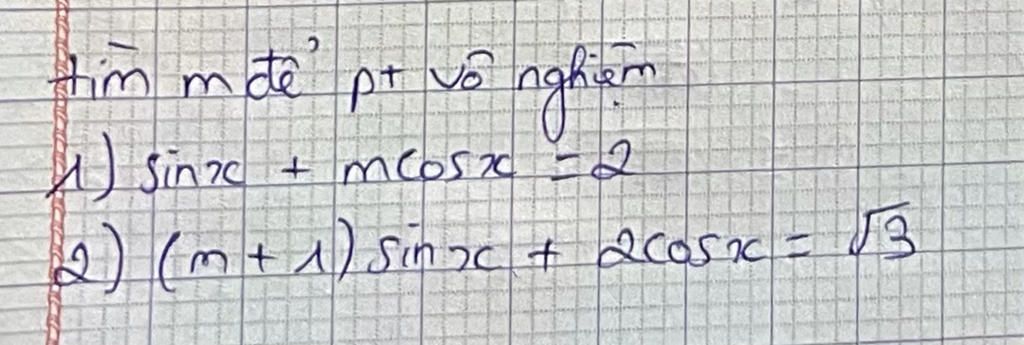 tìm m để pt vô nghiệm
1) sinx + mcosx = 2
2) (m + 1) sinx + 2cosx = √3